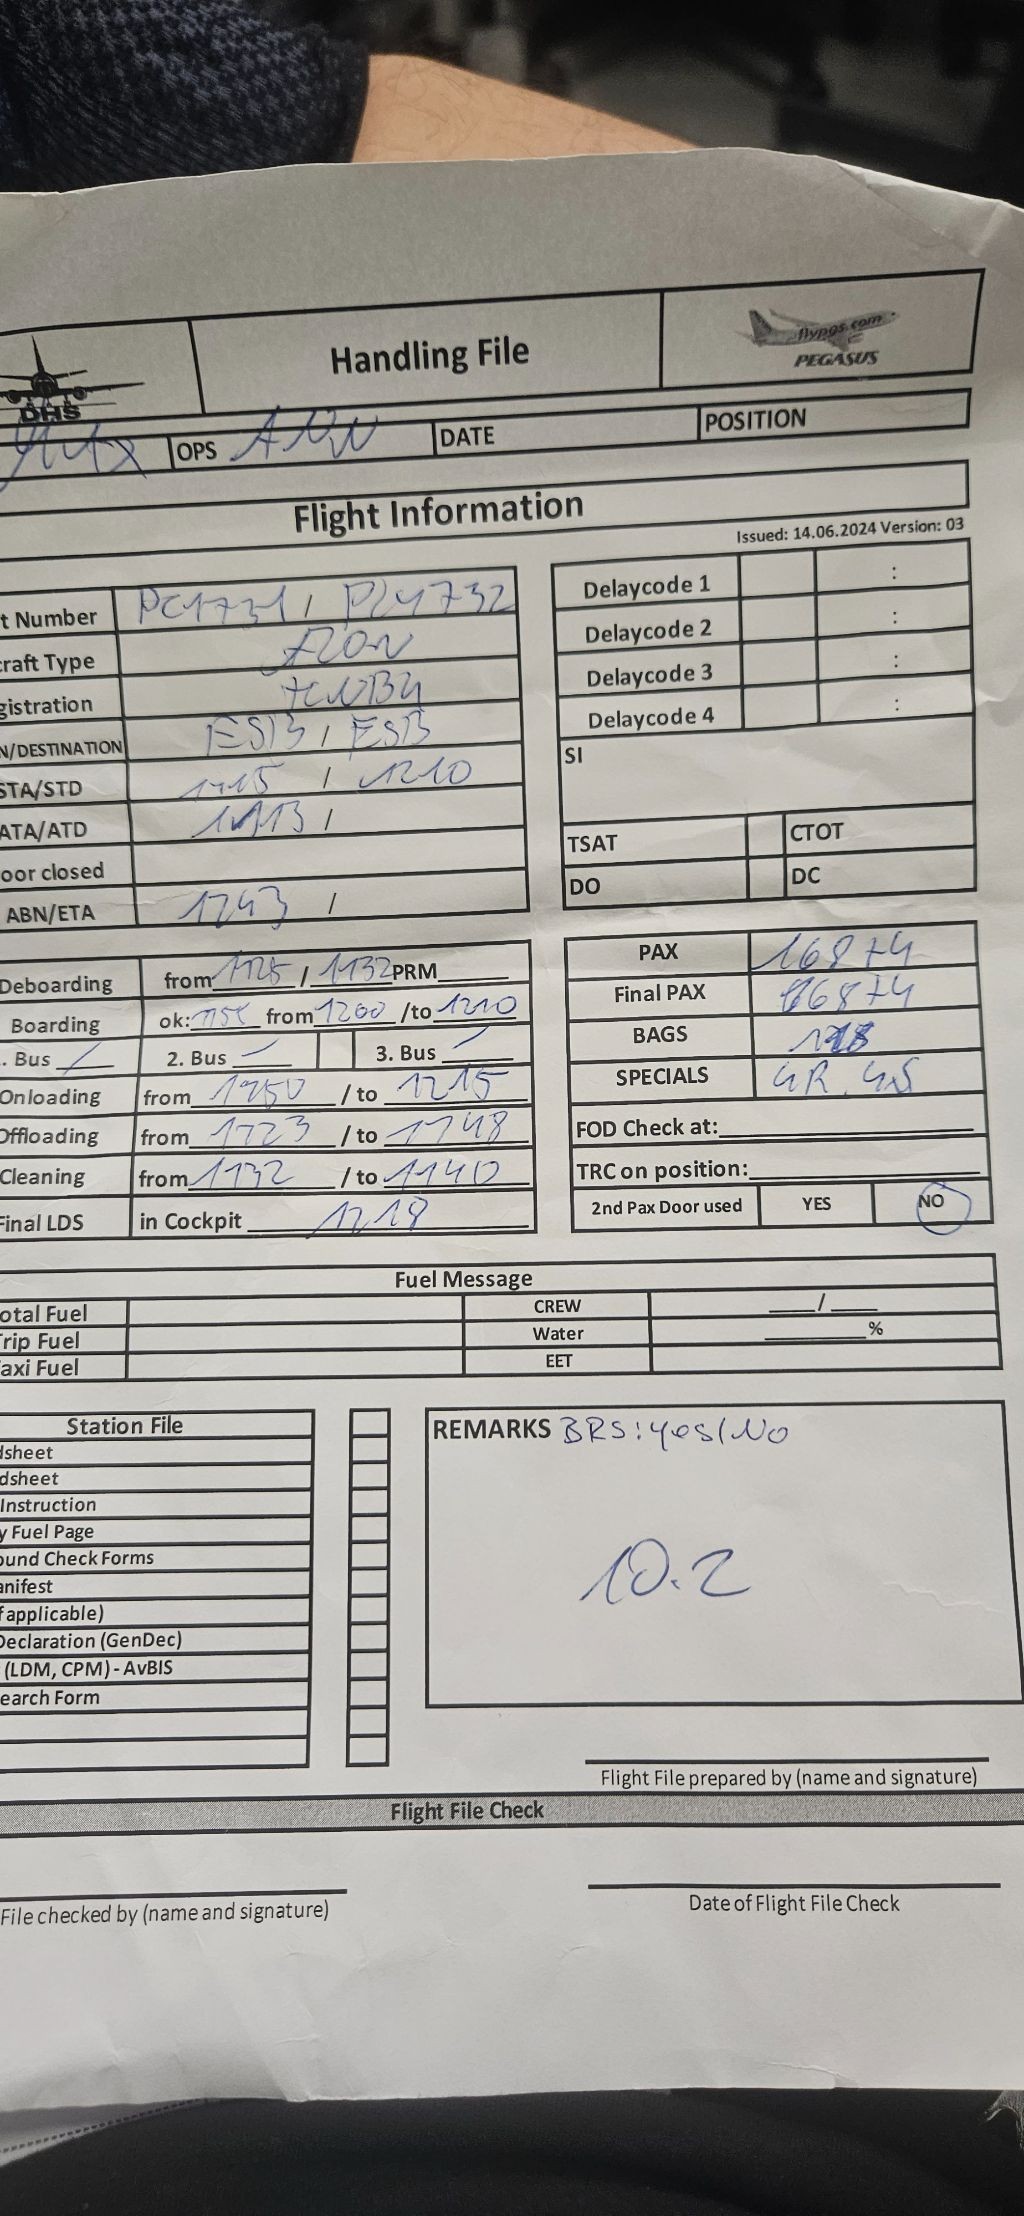 Handling File
flypgs.com
PEGASUS
DHS
OPS DATE POSITION
Flight Information
Issued: 14.06.2024 Version: 03
t Number PC1731 /
raft Type A20N
gistration TCNBU
N/DESTINATION ESB / ESB
STA/STD 1115 / 1210
ATA/ATD /
oor closed
ABN/ETA 1243 /
Delaycode 1 :
Delaycode 2 :
Delaycode 3 :
Delaycode 4 :
SI
TSAT CTOT
DO DC
Deboarding from 1125 / 1132 PRM
Boarding ok: from 1200 /to 1210
. Bus / 2. Bus / 3. Bus /
Onloading from / to 1215
Offloading from 1123 / to 1148
Cleaning from 1132 / to 1140
Final LDS in Cockpit 1218
PAX 168+4
Final PAX 168+4
BAGS
SPECIALS
FOD Check at:
TRC on position:
2nd Pax Door used YES NO
Fuel Message
otal Fuel CREW /
rip Fuel Water %
axi Fuel EET
Station File
dsheet
dsheet
Instruction
y Fuel Page
ound Check Forms
anifest
f applicable)
Declaration (GenDec)
(LDM, CPM) - AvBIS
earch Form
REMARKS BRS: yes/No
10.2
Flight File prepared by (name and signature)
Flight File Check
File checked by (name and signature)
Date of Flight File Check